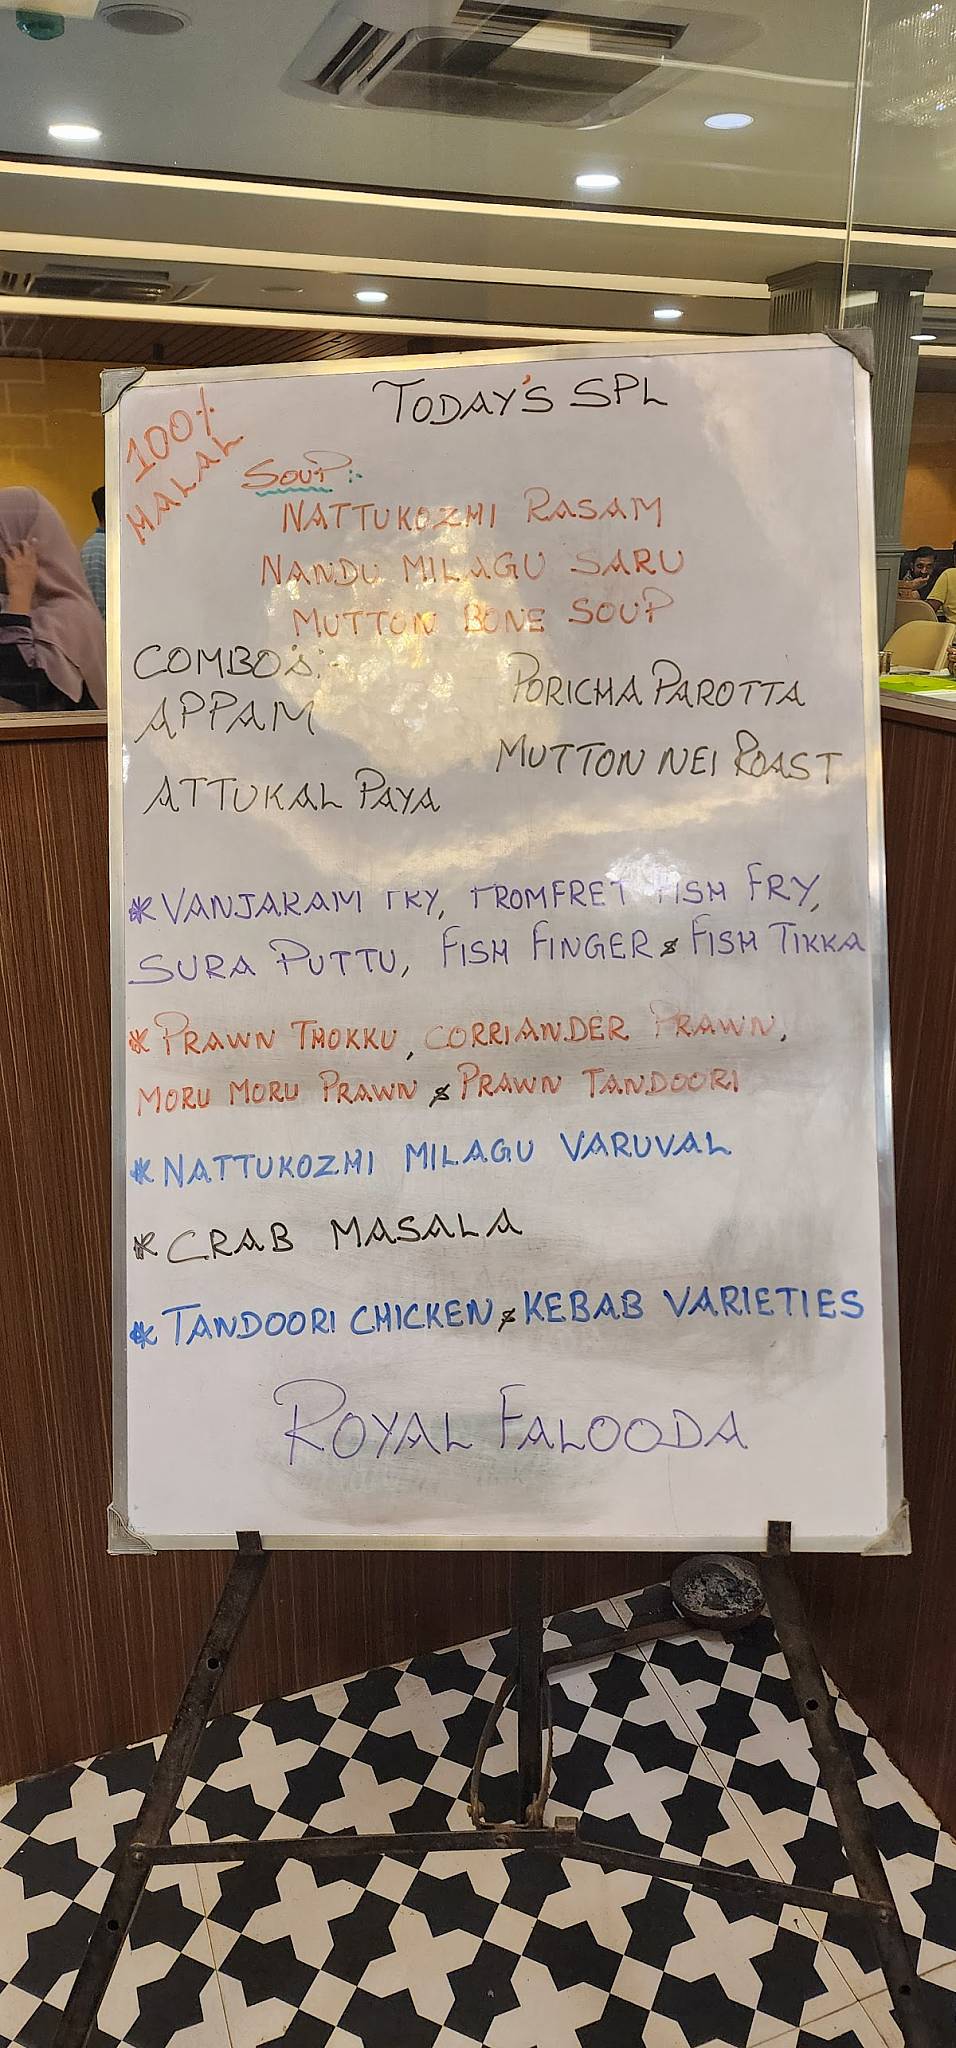 TODAY'S SPL
100%
HALAL
SOUP:-
NATTUKOZHI RASAM
NANDU MILAGU SARU
MUTTON BONE SOUP
COMBO'S:-
APPAM
ATTUKAL PAYA
PORICHA PAROTTA
MUTTON NEI ROAST
* VANJARAM FRY, PROMFRET FISH FRY,
SURA PUTTU, FISH FINGER & FISH TIKKA
* PRAWN THOKKU, CORRIANDER PRAWN,
MORU MORU PRAWN & PRAWN TANDOORI
* NATTUKOZHI MILAGU VARUVAL
* CRAB MASALA
* TANDOORI CHICKEN & KEBAB VARIETIES
ROYAL FALOODA